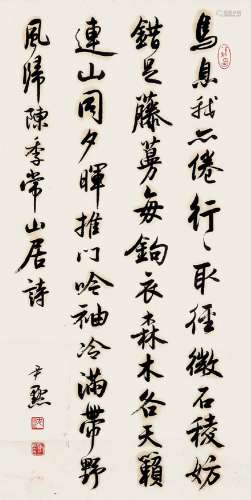 鳥息我亦倦行〻取徑微石稜妨
錯是藤蔓每鉤衣森木各天籟
連山同夕暉推門吟袖冷滿帶野
風歸陳季常山居詩
尹默